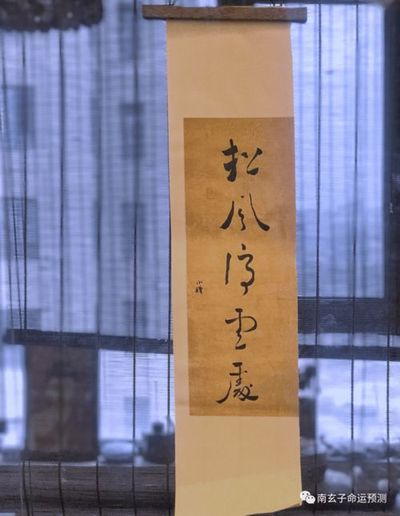 松風停雲處
南玄子命运预测